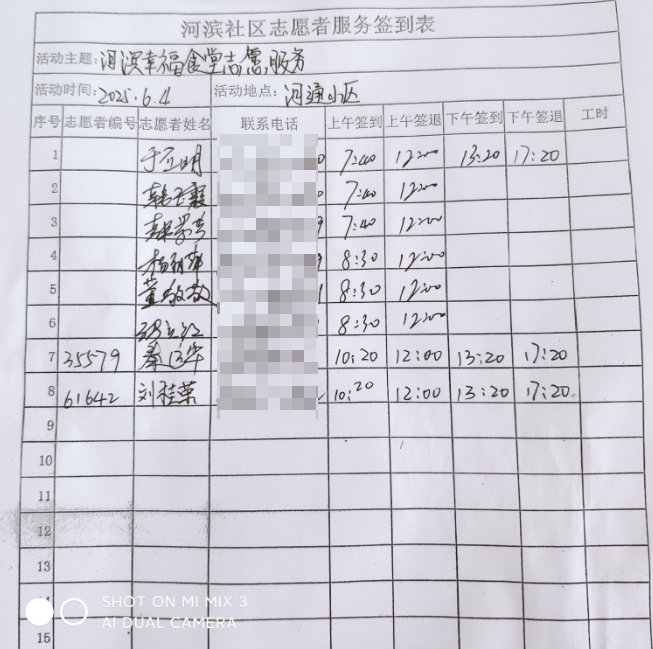 河滨社区志愿者服务签到表
活动主题: 河滨幸福食堂志愿服务
活动时间: 2025.6.4 活动地点: 河浦小区
序号 志愿者编号 志愿者姓名 联系电话 上午签到 上午签退 下午签到 下午签退 工时
1 于立明 0 7:40 12:00 13:20 17:20
2 7:40 12:00
3 9 7:40 12:00
4 9 8:30 12:00
5 董敬敬 1 8:30 12:00
6 8:30 12:00
7 35579 秦 华 10:20 12:00 13:20 17:20
8 61642 刘桂荣 10:20 12:00 13:20 17:20
9
10
11
12
13
14
15
SHOT ON MI MIX 3
AI DUAL CAMERA